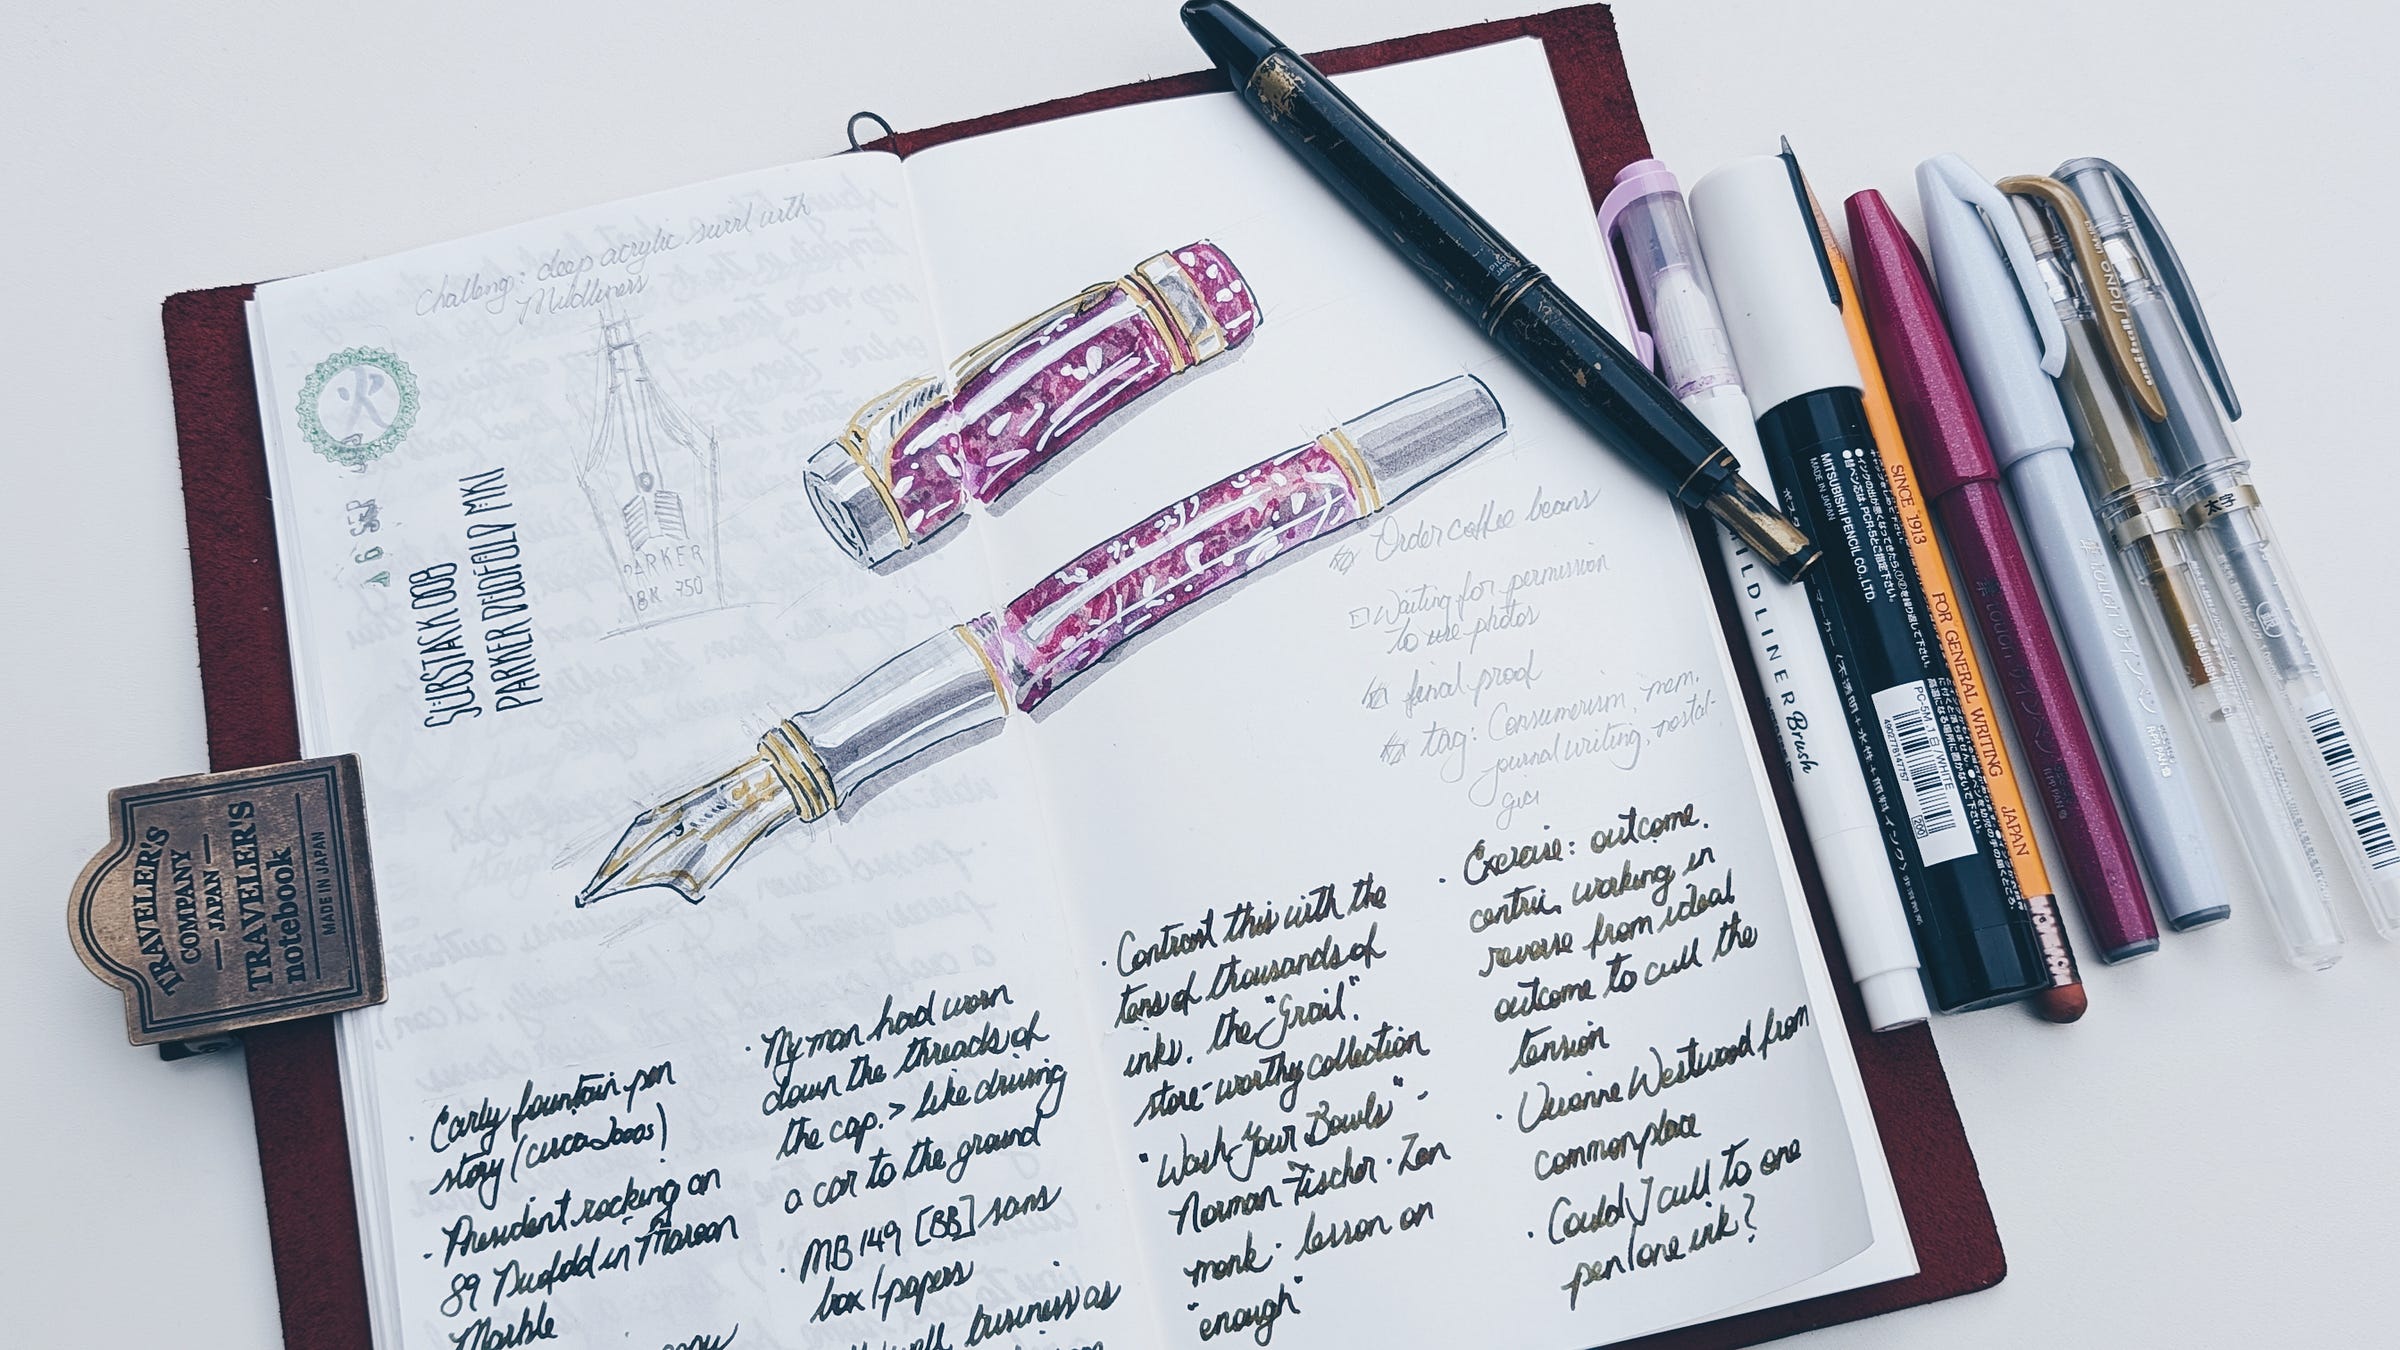 Challeng: deep acrylic swirl with
Mildliners
火
16 SEP
SUBSTACK 008
PARKER DUOFOLD MKI
PARKER
18K 750
Order coffee beans
Waiting for permission
to use photos
final proof
tag: Consumerism, mem.
journal writing, nostal-
gia
· Early fountain pen
story (circa 2000s)
· President rocking an
89 Duofold in Maroon
Marble
· My man had worn
down the threads of
the cap. > like driving
a car to the ground
· MB 149 [BB] sans
box/papers
well, business as
· Contrast this with the
tens of thousands of
inks, the "Grail".
store-worthy collection
· "Wash Your Bowls" -
Norman Fischer · Zen
monk · lesson on
"enough"
· Exercise: outcome
centric, working in
reverse from ideal
outcome to cull the
tension
· Vivienne Westwood from
commonplace
· Could I cull to one
pen/one ink?
TRAVELER'S
COMPANY
JAPAN
TRAVELER'S
notebook
MADE IN JAPAN
PILOT
JAPAN
MILDLINER Brush
MITSUBISHI PENCIL CO., LTD.
MADE IN JAPAN
PC-5M 1B/WHITE
4902778147757
200
SINCE 1913
FOR GENERAL WRITING
JAPAN
筆touch サインペン
筆touch サインペン
uni-ball SIGNO
太字
銀